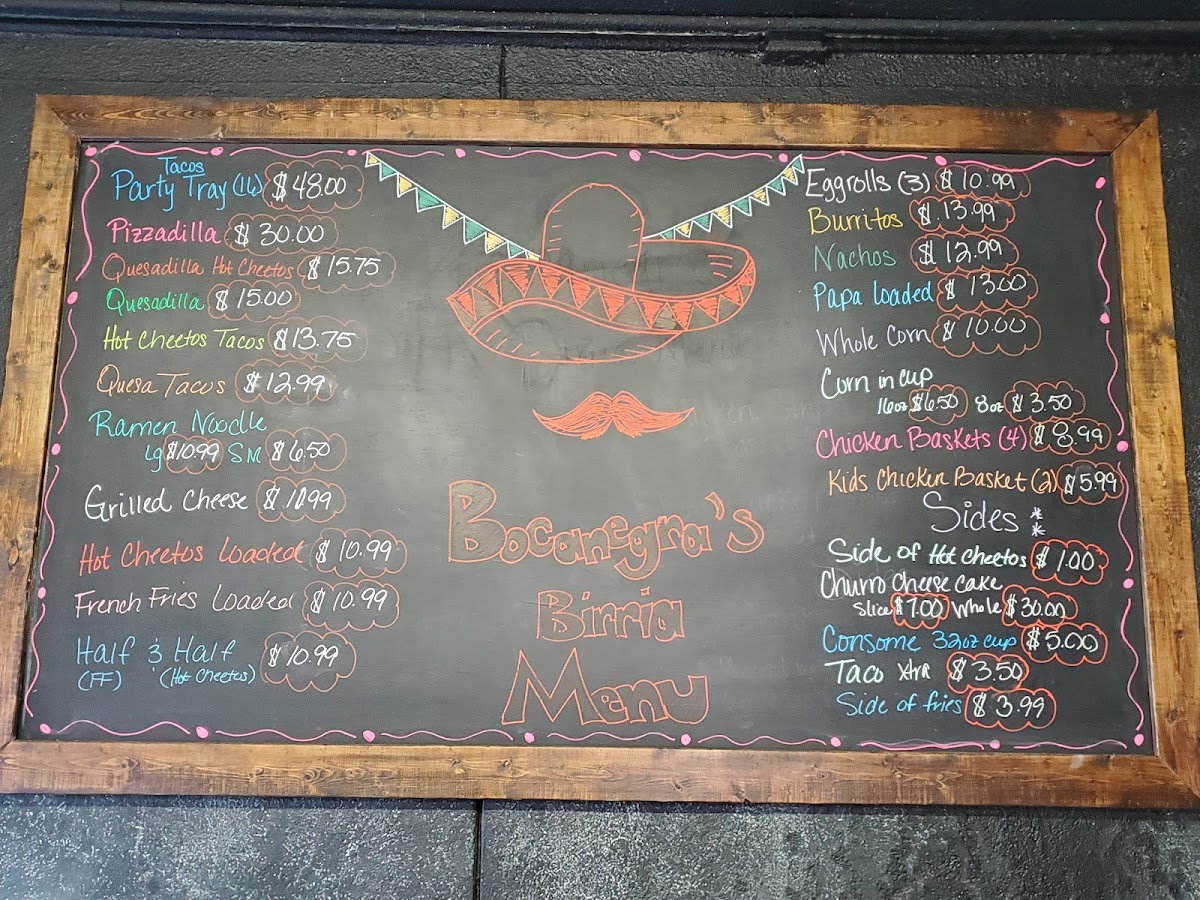 Tacos
Party Tray (16) $48.00
Pizzadilla $30.00
Quesadilla Hot Cheetos $15.75
Quesadilla $15.00
Hot Cheetos Tacos $13.75
Quesa Tacos $12.99
Ramen Noodle
Lg $10.99 SM $6.50
Grilled Cheese
Hot Cheetos Loaded $10.99
French Fries Loaded $10.99
Half & Half $10.99
(FF) (Hot Cheetos)
Bocanegra's
Birria
Menu
Eggrolls (3) $10.99
Burritos $13.99
Nachos $12.99
Papa Loaded $13.00
Whole Corn $10.00
Corn in cup
16oz $6.50 8oz $3.50
Chicken Baskets (4) $8.99
Kids Chicken Basket (2) $5.99
Sides **
Side of Hot Cheetos $1.00
Churro Cheese Cake
Slice $7.00 Whole $30.00
Consome 32oz cup $5.00
Taco Xtra $3.50
Side of fries $3.99